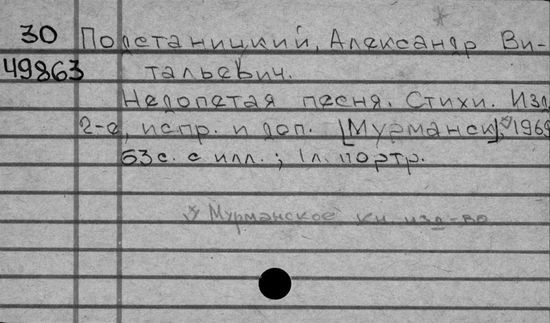 30 Подстаницкий, Александр Ви-
49863 тальевич.
Недопетая песня. Стихи. Изд.
2-е, испр. и доп. [Мурманск],
63 с. с илл.; 1 л. портр.
Мурманское кн. изд-во